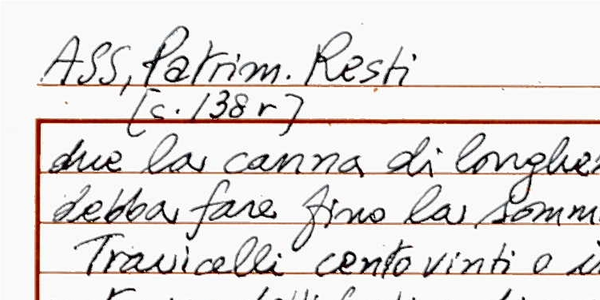 ASS, Patrim. Resti
[c. 138 r]
due la canna di longhe
debba fare fino la somm
Travicelli cento vinti o i